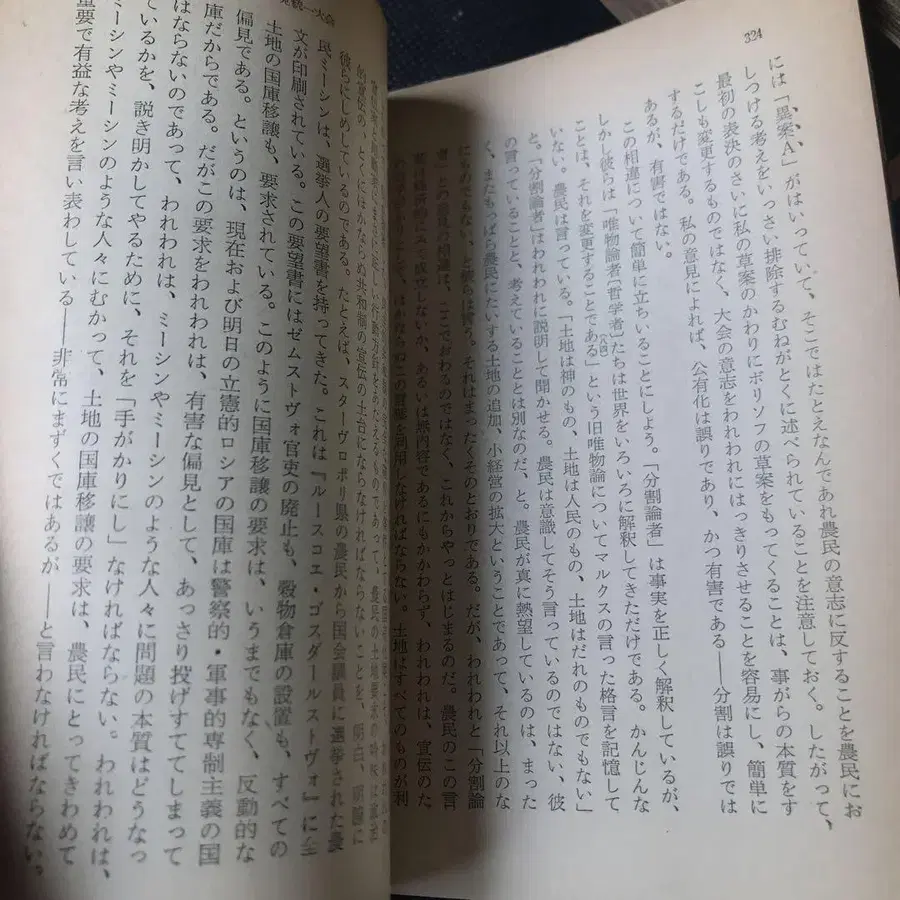 324
には「異案A」がはいっていて、そこではたとえなんであれ農民の意志に反することを農民にお
しつける考えをいっさい排除するむねがとくに述べられていることを注意しておく。したがって、
最初の表決のさいに私の草案のかわりにボリソフの草案をもってくることは、事がらの本質をす
こしも変更するものではなく、大会の意志をわれわれにはっきりさせることを容易にし、簡単に
するだけである。私の意見によれば、公有化は誤りであり、かつ有害である——分割は誤りでは
あるが、有害ではない。
この相違について簡単に立ちいることにしよう。「分割論者」は事実を正しく解釈しているが、
しかし彼らは「唯物論者〔哲学者〕たちは世界をいろいろに解釈してきただけである。かんじんな
ことは、それを変更することである」という旧唯物論についてマルクスの言った格言を記憶して
いない。農民は言っている。「土地は神のもの、土地は人民のもの、土地はだれのものでもない」
と。「分割論者」はわれわれに説明して聞かせる。農民は意識してそう言っているのではない、彼
の言っていることと、考えていることとは別なのだ、と。農民が真に熱望しているのは、まった
く、またもっぱら農民にたいする土地の追加、小経営の拡大ということであって、それ以上のな
にものでもない、と彼らは言う。それはまったくそのとおりである。だが、われわれと「分割論
者」との意見の相違は、ここでおわるのではなく、これからやっとはじまるのだ。農民のこの言
成立しないか、あるいは無内容であるにもかかわらず、われわれは、宣伝のた
この言葉を利用しなければならない。土地はすべてのものが利
党統一大会
的宣伝の、とくにほかならぬ共和制の宣伝の土台にならなければならないことを、明白、明瞭に
彼らにしめしているのである。たとえば、スターヴロポリ県の農民から国会議員に選挙された農
民ミーシンは、選挙人の要望書を持ってきた。これは『ルースコエ・ゴスダールストヴォ』に全
文が印刷されている。この要望書にはゼムストヴォ官吏の廃止も、穀物倉庫の設置も、すべての
土地の国庫移譲も、要求されている。このように国庫移譲の要求は、いうまでもなく、反動的な
偏見である。というのは、現在および明日の立憲的ロシアの国庫は警察的・軍事的専制主義の国
庫だからである。だがこの要求をわれわれは、有害な偏見として、あっさり投げすててしまって
はならないのであって、われわれは、ミーシンやミーシンのような人々に問題の本質はどうなっ
ているかを、説き明かしてやるために、それを「手がかりにし」なければならない。われわれは、
ミーシンやミーシンのような人々にむかって、土地の国庫移譲の要求は、農民にとってきわめて
重要で有益な考えを言い表わしている——非常にまずくではあるが——と言わなければならない。